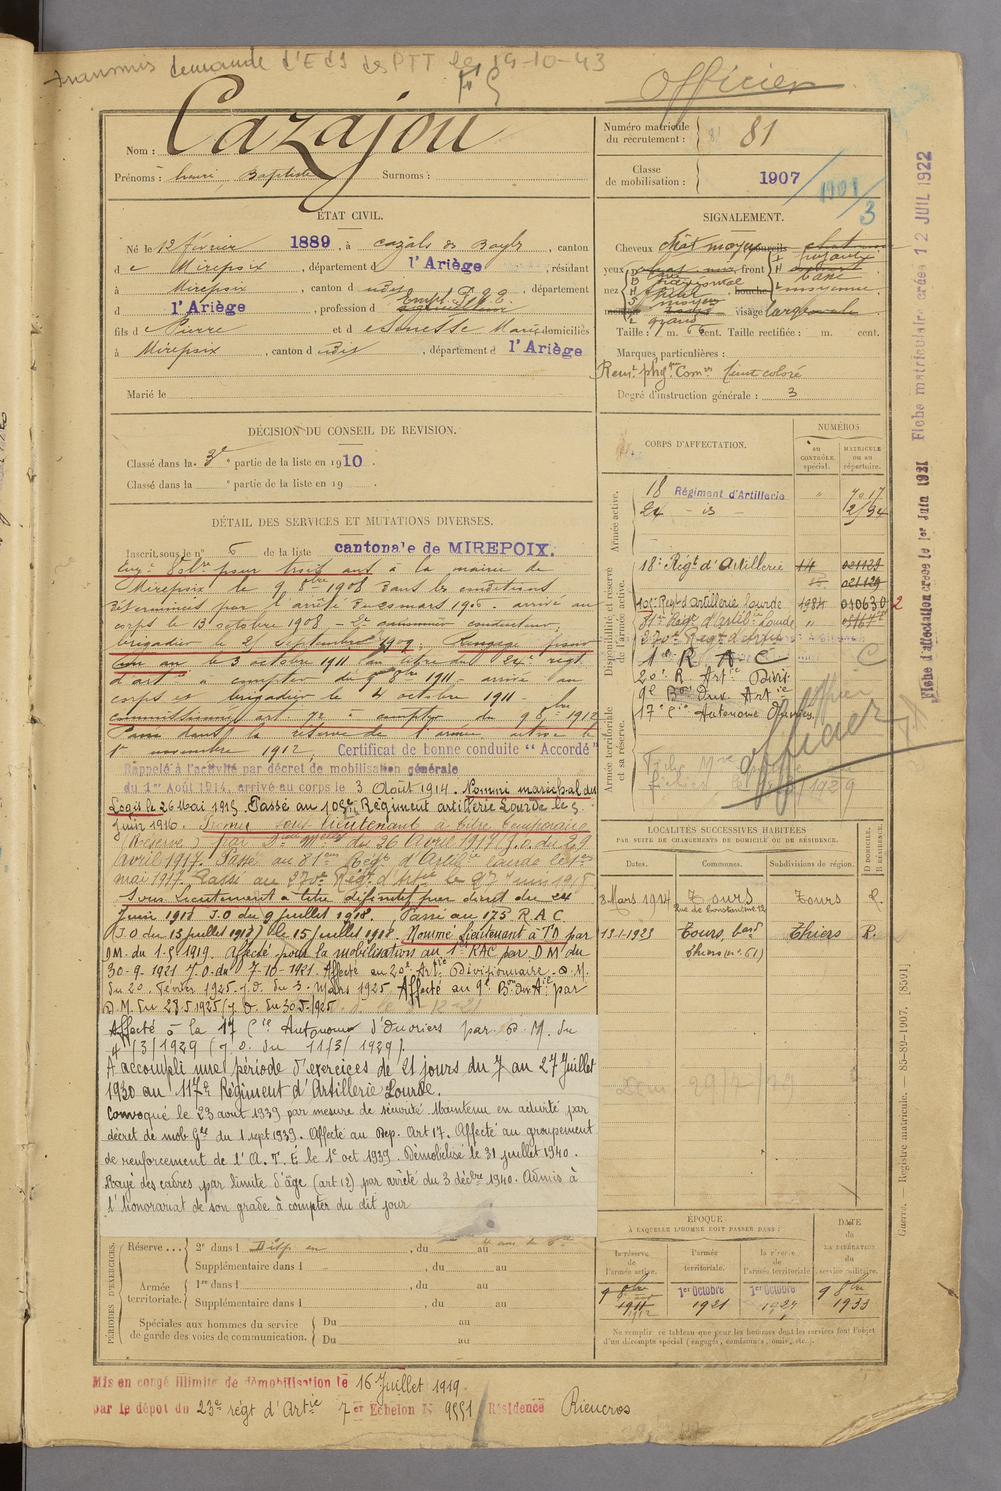 transmis demande d'E des PTT le 19-10-43
Officier
Nom : Cazajou
Prénoms : henri, Baptiste Surnoms :
Numéro matricule du recrutement : 81
Classe de mobilisation : 1907
3
ÉTAT CIVIL.
Né le 12 février 1889, à Cazals des Bayls, canton
de Mirepoix, département d l'Ariège, résidant
à Mirepoix, canton d udis, département
d l'Ariège, profession d Empl. P.T.T.
fils de Pierre et d esenesse Marie domiciliés
à Mirepoix, canton d udis, département d l'Ariège
Marié le
SIGNALEMENT.
Cheveux chât moyen
yeux front fuyant
nez horizontal base moyenne
visage large
Taille : 1 m. 66 cent. Taille rectifiée : m. cent.
Marques particulières :
Renst phyq Comrs teint coloré
Degré d'instruction générale : 3
DÉCISION DU CONSEIL DE REVISION.
Classé dans la 3e partie de la liste en 1910.
Classé dans la partie de la liste en 19 .
DÉTAIL DES SERVICES ET MUTATIONS DIVERSES.
Inscrit sous le n° 6 de la liste cantonale de MIREPOIX.
Engé volre pour trois ans à la mairie de
Mirepoix le 9 8bre 1908 dans les conditions
déterminées par l'arrêté du 25 mars 1906. arrivé au
corps le 13 octobre 1908 - 2e canonnier conducteur,
brigadier le 25 septembre 1909. Rengagé pour
un an le 3 octobre 1911 au titre du 24e régt
d'art à compter du 9 8bre 1911. arrivé au
corps et brigadier le 4 octobre 1911
commissionné art. 72 à compter du 9 8bre 1912
Passé dans la réserve de l'armée active le
1er novembre 1912. Certificat de bonne conduite "Accordé"
Rappelé à l'activité par décret de mobilisation générale
du 1er Août 1914, arrivé au corps le 3 Août 1914. Nommé maréchal des
Logis le 26 Mai 1915. Passé au 105e Régiment artillerie Lourde le 5
juin 1916. Promu sous lieutenant à titre temporaire
(Réserve) par Don melle du 26 Avril 1917 (J.O. du 29
avril 1917. Passé au 81em Régt d'Artillie Lourde le 1er
mai 1917. Passé au 270e Régt d'Artie le 27 juin 1918
Sous Lieutenant à titre définitif par décret du 24
Juin 1918 J.O du 9 juillet 1918. Passé au 175 R.A.C
(J.O du 13 juillet 1918) le 15 juillet 1918. Nommé Lieutenant à T.D par
DM. du 1.5e 1919. Affecté pour la mobilisation au 1er RAC par DM du
30-9-1921 J.O. du 7-10-1921. Affecté au 20e Artie Divisionnaire. D.M.
du 20 Février 1925. J.O. du 3 Mars 1925. Affecté au 9e Bon ouv Aie par
D.M. du 28.5.1925 (J.O. du 30.5.1925
Affecté à la 17 Cie Autonome d'Ouvriers par D.M. du
4/3/1929 (J.O. du 11/3/1929).
A accompli une période d'exercices de 21 jours du 7 au 27 Juillet
1930 au 117e Régiment d'Artillerie Lourde.
Convoqué le 23 aout 1939 par mesure de sécurité. Maintenu en activité par
décret de mob Gle du 1 sept 1939. Affecté au Dep. Art 17. Affecté au groupement
de renforcement de l'A.T.E le 1e oct 1939. Démobilisé le 31 juillet 1940.
Rayé des cadres par limite d'âge (art 12) par arrêté du 3 décbre 1940. Admis à
l'honorariat de son grade à compter du dit jour
CORPS D'AFFECTATION.
NUMÉROS
au CONTRÔLE spécial.
MATRICULE ou au répertoire.
Armée active.
18 Régiment d'Artillerie " 7017
24 - is - 2/94
Disponibilité et réserve de l'armée active.
18e Régt d'Artillerie 14 021129
021129
105e Regt d'Artillerie Lourde 1984 010630 2
81e Régt d'Artillie Lourde "
270e Régt d'Artie
1er R A C C
20e R. Artie Divis.
9e Bon Ouv. Artie
17e Cie Autonome Ouvriers
Armée territoriale et sa réserve.
Officier
officier
LOCALITÉS SUCCESSIVES HABITÉES
PAR SUITE DE CHANGEMENTS DE DOMICILE OU DE RÉSIDENCE.
Dates. Communes. Subdivisions de région. D. DOMICILE. R. RÉSIDENCE.
8 Mars 1914 Tours Tours R.
Rue de Constantine 12
13-1-1923 Tours, bard Thiers R.
Thiers (n° 61)
ÉPOQUE
À LAQUELLE L'HOMME DOIT PASSER DANS :
la réserve de l'armée active.
l'armée territoriale.
la réserve de l'armée territoriale.
DATE de LA LIBÉRATION du service militaire.
9 8bre 1911 1912
1er Octobre 1921
1er Octobre 1927
9 8bre 1933
Ne remplir ce tableau que pour les hommes dont les services font l'objet
d'un décompte spécial (engagés, condamnés, omis, etc.).
PÉRIODES D'EXERCICES.
Réserve ... 2e dans l Disp en , du au
Supplémentaire dans l , du au
Armée territoriale. 1re dans l , du au
Supplémentaire dans l , du au
Spéciales aux hommes du service de garde des voies de communication. Du au
Du au
Mis en congé illimité de démobilisation le 16 Juillet 1919
par le dépôt du 23e régt d'Artie 7 er Echelon N° 9551 Résidence Rieucros
Fiche matriculaire créée 12 JUIL 1922
Fiche d'affectation créée le 1er Juin 1921
Guerre. — Registre matricule. — 85-89-1907. [8591]